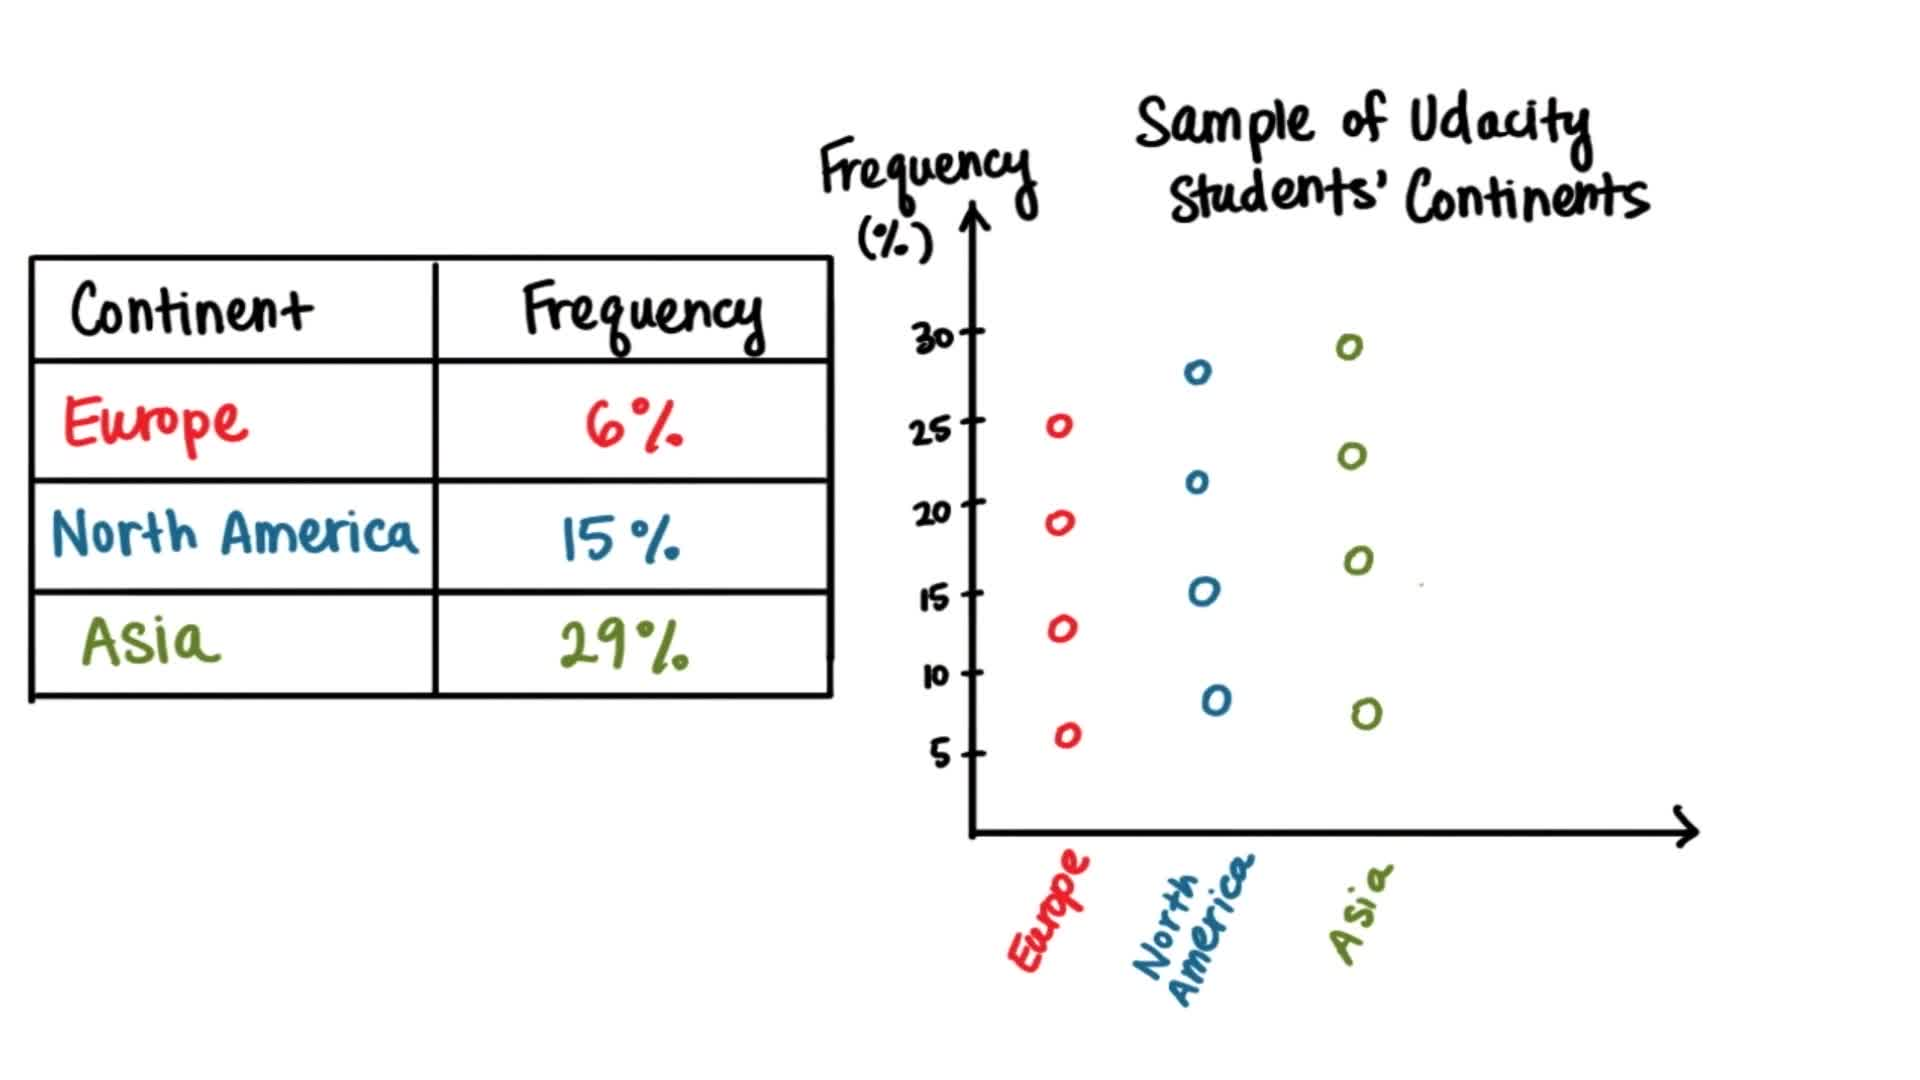 Continent Frequency
Europe 6%
North America 15%
Asia 29%
Sample of Udacity
Students' Continents
Frequency
(%)
30
25
20
15
10
5
Europe
North
America
Asia